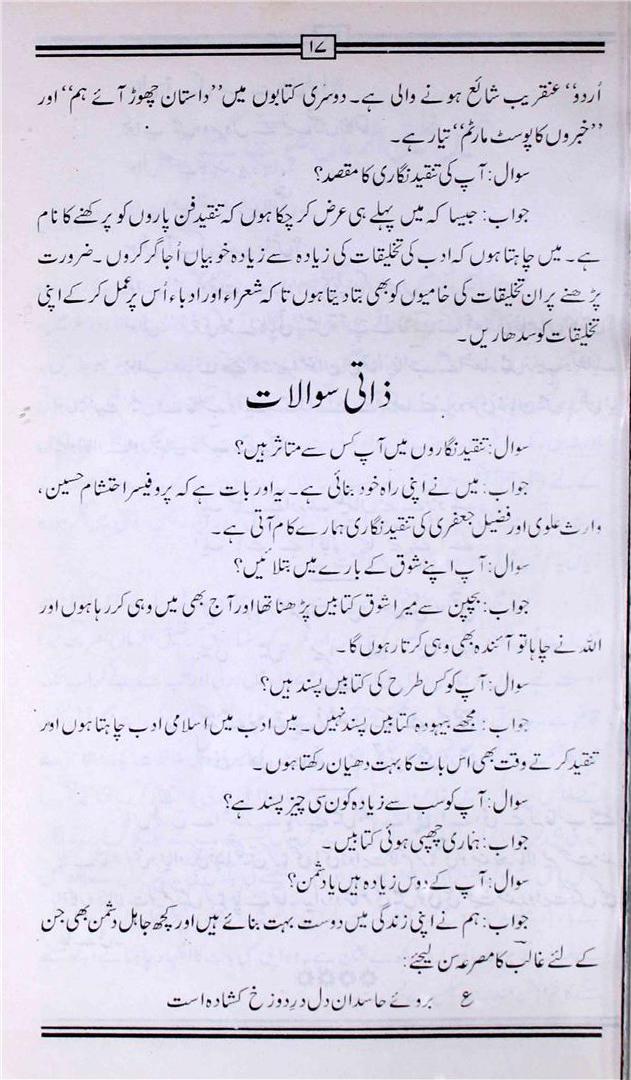 ۱۷
اُردو‘‘ عنقریب شائع ہونے والی ہے۔ دوسری کتابوں میں ’’داستان چھوڑ آئے ہم‘‘ اور
’’خبروں کا پوسٹ مارٹم‘‘ تیار ہے۔
سوال: آپ کی تنقید نگاری کا مقصد؟
جواب: جیسا کہ میں پہلے ہی عرض کر چکا ہوں کہ تنقید فن پاروں کو پرکھنے کا نام
ہے۔ میں چاہتا ہوں کہ ادب کی تخلیقات کی زیادہ سے زیادہ خوبیاں اُجاگر کروں۔ ضرورت
پڑھنے پر ان تخلیقات کی خامیوں کو بھی بتا دیتا ہوں تا کہ شعراء اور ادباء اُس پر عمل کر کے اپنی
تخلیقات کو سدھاریں۔
ذاتی سوالات
سوال: تنقید نگاروں میں آپ کس سے متاثر ہیں؟
جواب: میں نے اپنی راہ خود بنائی ہے۔ یہ اور بات ہے کہ پروفیسر احتشام حسین،
وارث علوی اور فضیل جعفری کی تنقید نگاری ہمارے کام آتی ہے۔
سوال: آپ اپنے شوق کے بارے میں بتلائیں؟
جواب: بچپن سے میرا شوق کتابیں پڑھنا تھا اور آج بھی میں وہی کر رہا ہوں اور
اللہ نے چاہا تو آئندہ بھی وہی کرتا رہوں گا۔
سوال: آپ کو کس طرح کی کتابیں پسند ہیں؟
جواب: مجھے بیہودہ کتابیں پسند نہیں۔ میں ادب میں اسلامی ادب چاہتا ہوں اور
تنقید کرتے وقت بھی اس بات کا بہت دھیان رکھتا ہوں۔
سوال: آپ کو سب سے زیادہ کون سی چیز پسند ہے؟
جواب: ہماری چھپی ہوئی کتابیں۔
سوال: آپ کے دوس زیادہ ہیں یا دشمن؟
جواب: ہم نے اپنی زندگی میں دوست بہت بنائے ہیں اور کچھ جاہل دشمن بھی جن
کے لئے غالبؔ کا مصرعہ سن لیجئے:
ع بروئے حاسدان دل درِ دوزخ کشادہ است